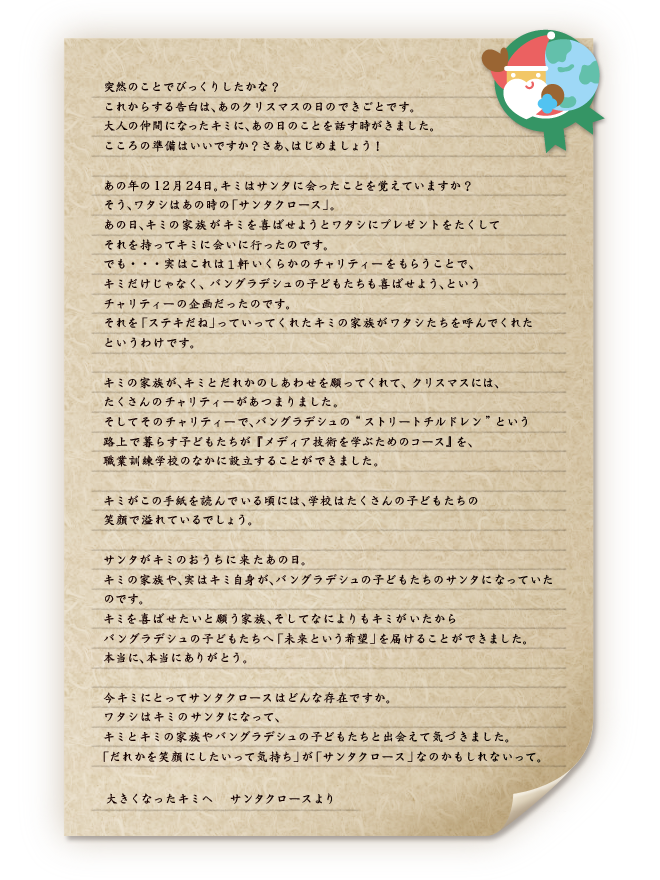 突然のことでびっくりしたかな？
これからする告白は、あのクリスマスの日のできごとです。
大人の仲間になったキミに、あの日のことを話す時がきました。
こころの準備はいいですか？さあ、はじめましょう！
あの年の12月24日。キミはサンタに会ったことを覚えていますか？
そう、ワタシはあの時の「サンタクロース」。
あの日、キミの家族がキミを喜ばせようとワタシにプレゼントをたくして
それを持ってキミに会いに行ったのです。
でも・・・実はこれは１軒いくらかのチャリティーをもらうことで、
キミだけじゃなく、バングラデシュの子どもたちも喜ばせよう、という
チャリティーの企画だったのです。
それを「ステキだね」っていってくれたキミの家族がワタシたちを呼んでくれた
というわけです。
キミの家族が、キミとだれかのしあわせを願ってくれて、クリスマスには、
たくさんのチャリティーがあつまりました。
そしてそのチャリティーで、バングラデシュの“ストリートチルドレン”という
路上で暮らす子どもたちが『メディア技術を学ぶためのコース』を、
職業訓練学校のなかに設立することができました。
キミがこの手紙を読んでいる頃には、学校はたくさんの子どもたちの
笑顔で溢れているでしょう。
サンタがキミのおうちに来たあの日。
キミの家族や、実はキミ自身が、バングラデシュの子どもたちのサンタになっていた
のです。
キミを喜ばせたいと願う家族、そしてなによりもキミがいたから
バングラデシュの子どもたちへ「未来という希望」を届けることができました。
本当に、本当にありがとう。
今キミにとってサンタクロースはどんな存在ですか。
ワタシはキミのサンタになって、
キミとキミの家族やバングラデシュの子どもたちと出会えて気づきました。
「だれかを笑顔にしたいって気持ち」が「サンタクロース」なのかもしれないって。
大きくなったキミへ　サンタクロースより